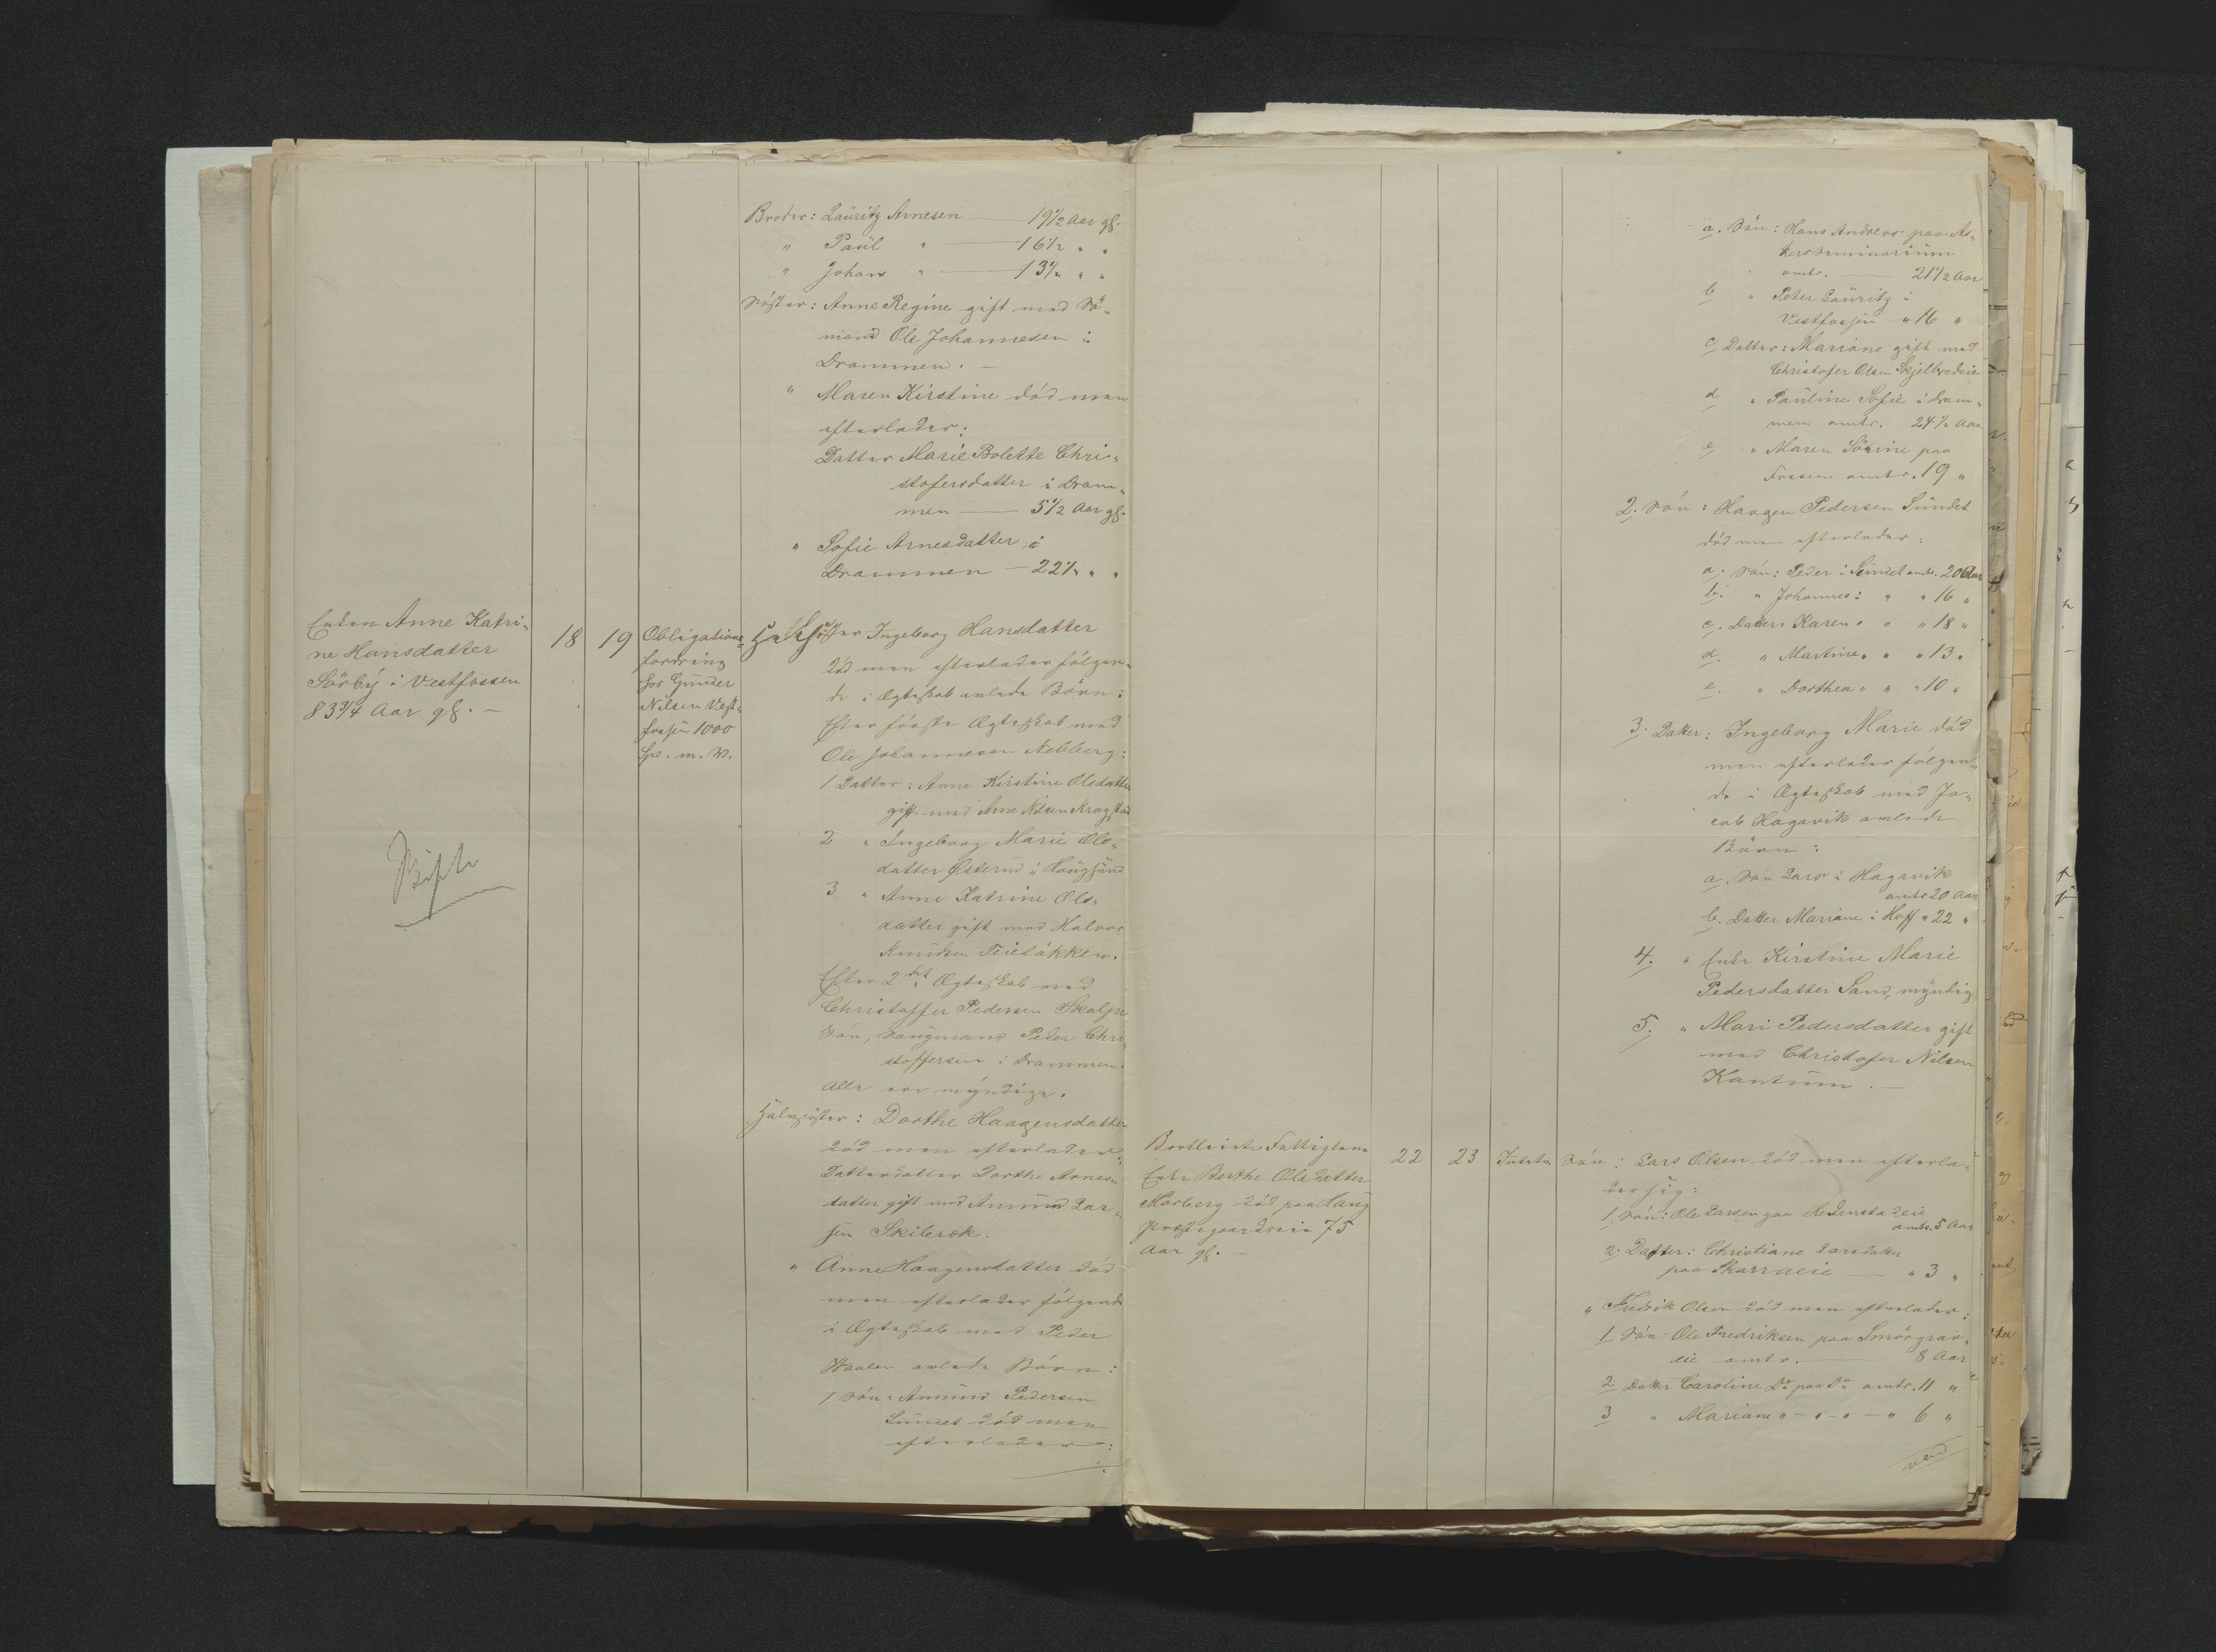 Broder: Lauritz Arnesen — 19 1/2 Aar gl.
" Paul " — 16 1/2 " "
" Johan " — 13 1/2 " "
Søster: Anne Regine gift med Sø-
mand Ole Johannesen i
Drammen. —
" Maren Kirstine død men
efterlader:
Datter Marie Bolette Chri-
stofersdatter i Dram-
men — 5 1/2 Aar gl.
" Sofie Arnesdatter i
Drammen — 22 1/2 " "
Enken Anne Katri-
ne Hansdatter
Sørby i Vestfossen
83 3/4 Aar gl. —
18
19
Obligations-
fordring
hos Gunder
Nilsen Vest-
fossen 1000
Spd. m. V.
Skifte
Halvsøster Ingeborg Hansdatter
død men efterlader følgen-
de i Ægteskab avlede Børn:
Efter første Ægteskab med
Ole Johannesen Nebberg:
1 Datter: Anne Kirstine Olsdatter
gift med Arne Nilsen Kragstad
2 " Ingeborg Marie Ols-
datter Østerud i Haugsund
3 " Anne Katrine Ols-
datter gift med Halvor
Knudsen Teieløkken.
Efter 2det Ægteskab med
Christoffer Pedersen
Søn, Peder Chri-
stoffersen i Drammen.
Alle ere myndige.
Halvsøster: Dorthe Haagensdatter
død men efterlader:
Datterdatter Dorthe Arnes-
datter gift med Amund Lar-
sen Skibersk.
" Anne Haagensdatter død
men efterlader følgende
i Ægteskab med Peder
avlede Børn:
1 Søn: Amund Pedersen
Sundet død men
efterlader:
a. Søn: Hans Andreas paa As-
kers Seminarium
omtr. — 21 1/2 Aar
b " Peter Lauritz i
Vestfossen " 16 "
c Datter: Mariane gift med
Christofer Olsen
d " Pauline Sofie i Dram-
men omtr. 24 1/2 Aar
e " Maren Sørine paa
Fossen omtr. 19 "
2. Søn: Haagen Pedersen Sundet
død men efterlader:
a. Søn: Peder i Sundet omtr. 20 Aar
b. " Johannes " " " 16 "
c. Datter: Karen " " " 18 "
d. " Martine " " " 13 "
e. " Dorthea " " " 10 "
3. Datter: Ingeborg Marie død
men efterlader følgen-
de i Ægteskab med Ja-
cob Hagavik avlede
Børn:
a. Søn Lars i Hagavik
omtr. 20 Aar
b. Datter Mariane i Hoff " 22 "
4. " Enke Kirstine Marie
Pedersdatter Sand, myndig
5. " Mari Pedersdatter gift
med Christofer Nilsen
Kantum. —
Fattiglem
Enke Berthe Olsdatter
Morberg død paa Haug
Præstegaardseie 75
Aar gl. —
22
23
Intet
Søn: Lars Olsen død men efterla-
der sig:
1. Søn: Ole Larsen paa Hedenstadeie
omtr. 5 Aar
2. Datter: Christiane Larsdatter
paa Skarraeie — " 3 "
" Fredrik Olsen død men efterlader:
1 Søn: Ole Fredriksen paa Smørgrav-
eie omtr. — 8 Aar
2 Datter Caroline Do paa Do omtr. 11 "
3 " Mariane " - " - " — " 6 "